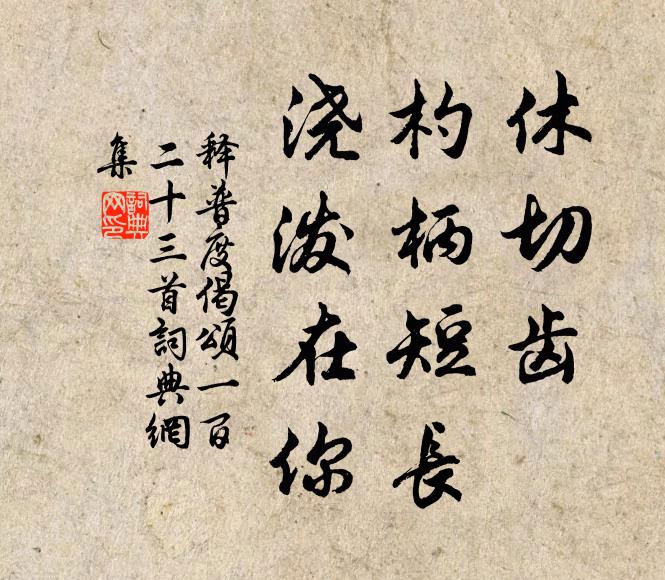 休切齿
杓柄短長
浇泼在你
释普度偈頌一百
二十三首詞典網
集
詞典網印